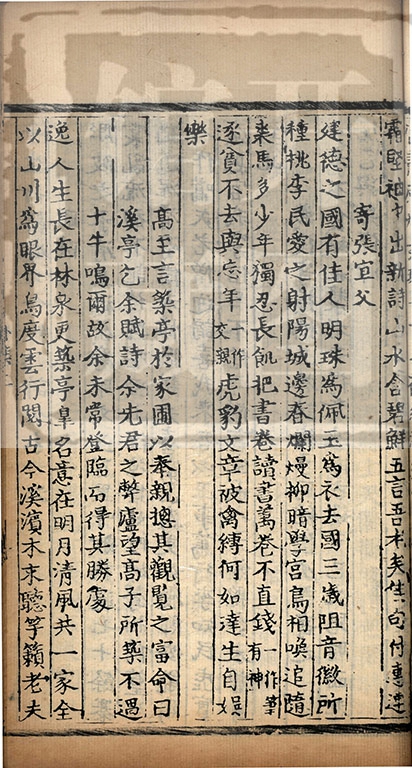 霜堅袖中出新詩山水含碧鮮五言吾老矣佳句付專達
寄張宣父
建德之國有佳人明珠為佩玉為衣去國三歲阻音徽所
種桃李民愛之射陽城邊春爛熳柳暗學宮鳥相喚追隨
裘馬多少年獨忍長飢把書卷讀書萬卷不直錢一作筆有神
逐貧不去與忘年一作文親虎豹文章被禽縛何如達生自娛
樂
高至言築亭於家圃以奉親摠其觀覽之富命曰
溪亭乞余賦詩余先君之弊廬望高子所築不過
十牛鳴爾故余未嘗登臨而得其勝處
逸人生長在林泉更築亭臯名意在明月清風共一家全
以山川為眼界鳥度雲行閱古今溪濱木末聽竽籟老夫